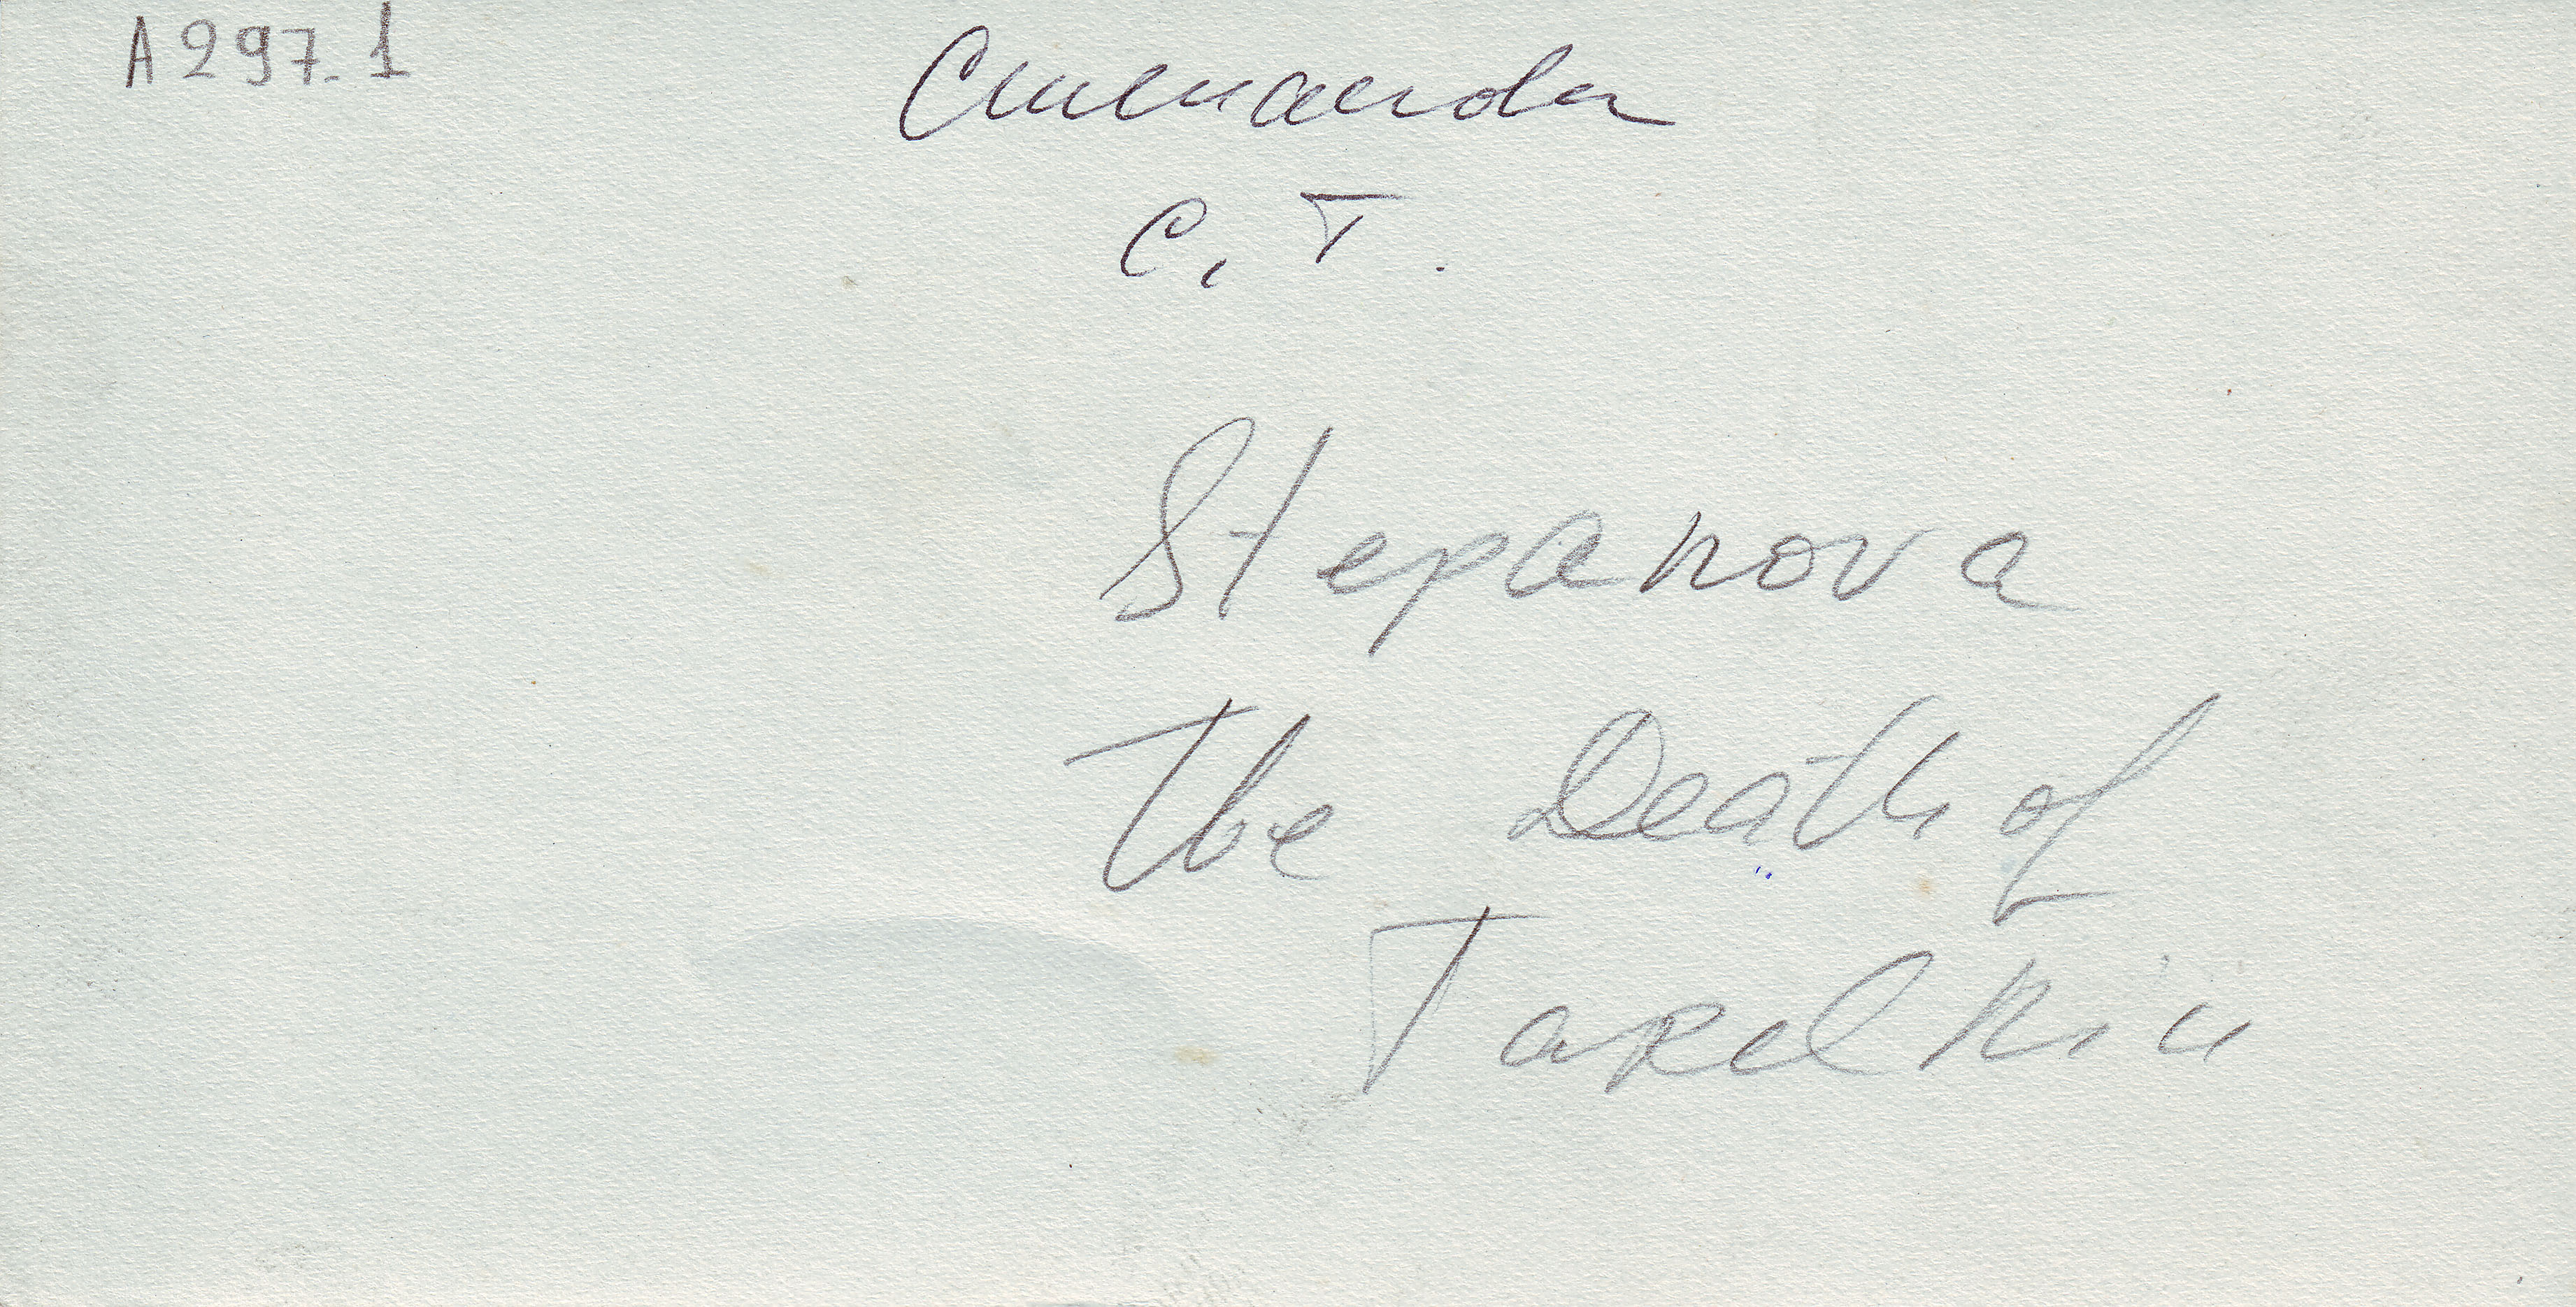 A297.1
Степанова
С. Т.
Stepanova
The Death of
Tarelkin